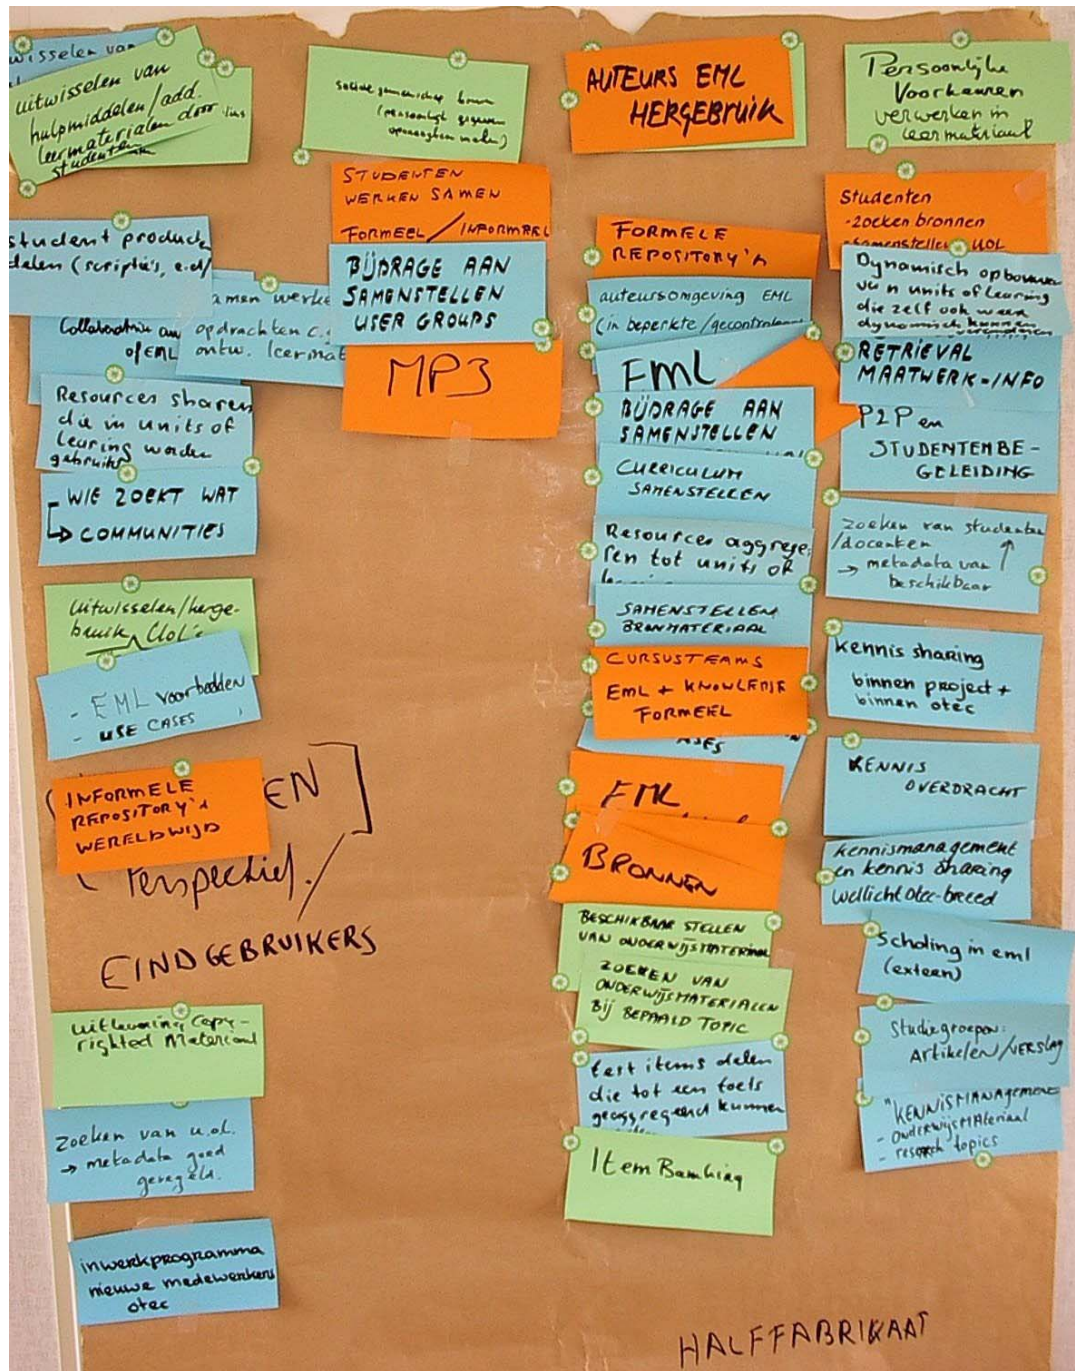 wisselen van
uitwisselen van
hulpmiddelen/add.
leermaterialen door
studenten
student produck
delen (scriptie's, e.d/
Collaboratie aan
of EML
amen werke
opdrachten c.q.
ontw. leermat
Resources sharen
die in units of
learing worden
gebruikt
- WIE ZOEKT WAT
↳ COMMUNITIES
Uitwisselen/herge-
bruik UoL's
- EML voorbeelden
- USE CASES
INFORMELE
REPOSITORY'S
WERELDWIJD
EN
Perspectief.
EINDGEBRUIKERS
uitlevering Copy-
righted Materiaal
Zoeken van u.o.l.
→ metadata goed
geregeld.
inwerkprogramma
nieuwe medewerkers
otec
Sociale gemeenschap bouwen
(persoonlijk gegevens
opvraagbaar maken)
STUDENTEN
WERKEN SAMEN
FORMEEL / INFORMEEL
BIJDRAGE AAN
SAMENSTELLEN
USER GROUPS
MP3
AUTEURS EML
HERGEBRUIK
FORMELE
REPOSITORY'S
auteursomgeving EML
(in beperkte/gecontroleer
EML
BIJDRAGE AAN
SAMENSTELLEN
CURRICULUM
SAMENSTELLEN
Resources aggrege-
ren tot units of
SAMENSTELLEN
BRONMATERIAAL
CURSUSTEAMS
EML + KNOWLEDGE
FORMEEL
ASES
EML
BRONNEN
BESCHIKBAAR STELLEN
VAN ONDERWIJSMATERIAAL
ZOEKEN VAN
ONDERWIJSMATERIALEN
BIJ BEPAALD TOPIC
test items delen
die tot een toets
geaggregeerd kunnen
Item Banking
Persoonlijke
Voorkeuren
verwerken in
leermateriaal
Studenten
- zoeken bronnen
- samenstellen UOL
Dynamisch opbouwen
van units of learing
die zelf ook weer
dynamisch kunnen
veranderen
RETRIEVAL
MAATWERK-INFO
P2P en
STUDENTENBE-
GELEIDING
Zoeken van studenten
/docenten
→ metadata van
beschikbaar
kennis sharing
binnen project +
binnen otec
KENNIS
OVERDRACHT
kennismanagement
en kennis sharing
wellicht otec-breed
Scholing in eml
(extern)
Studiegroepen:
ARTIKELEN/VERSLAG
"KENNISMANAGEMENT
- ONDERWIJSMATERIAAL
- research topics
HALFFABRIKAAT